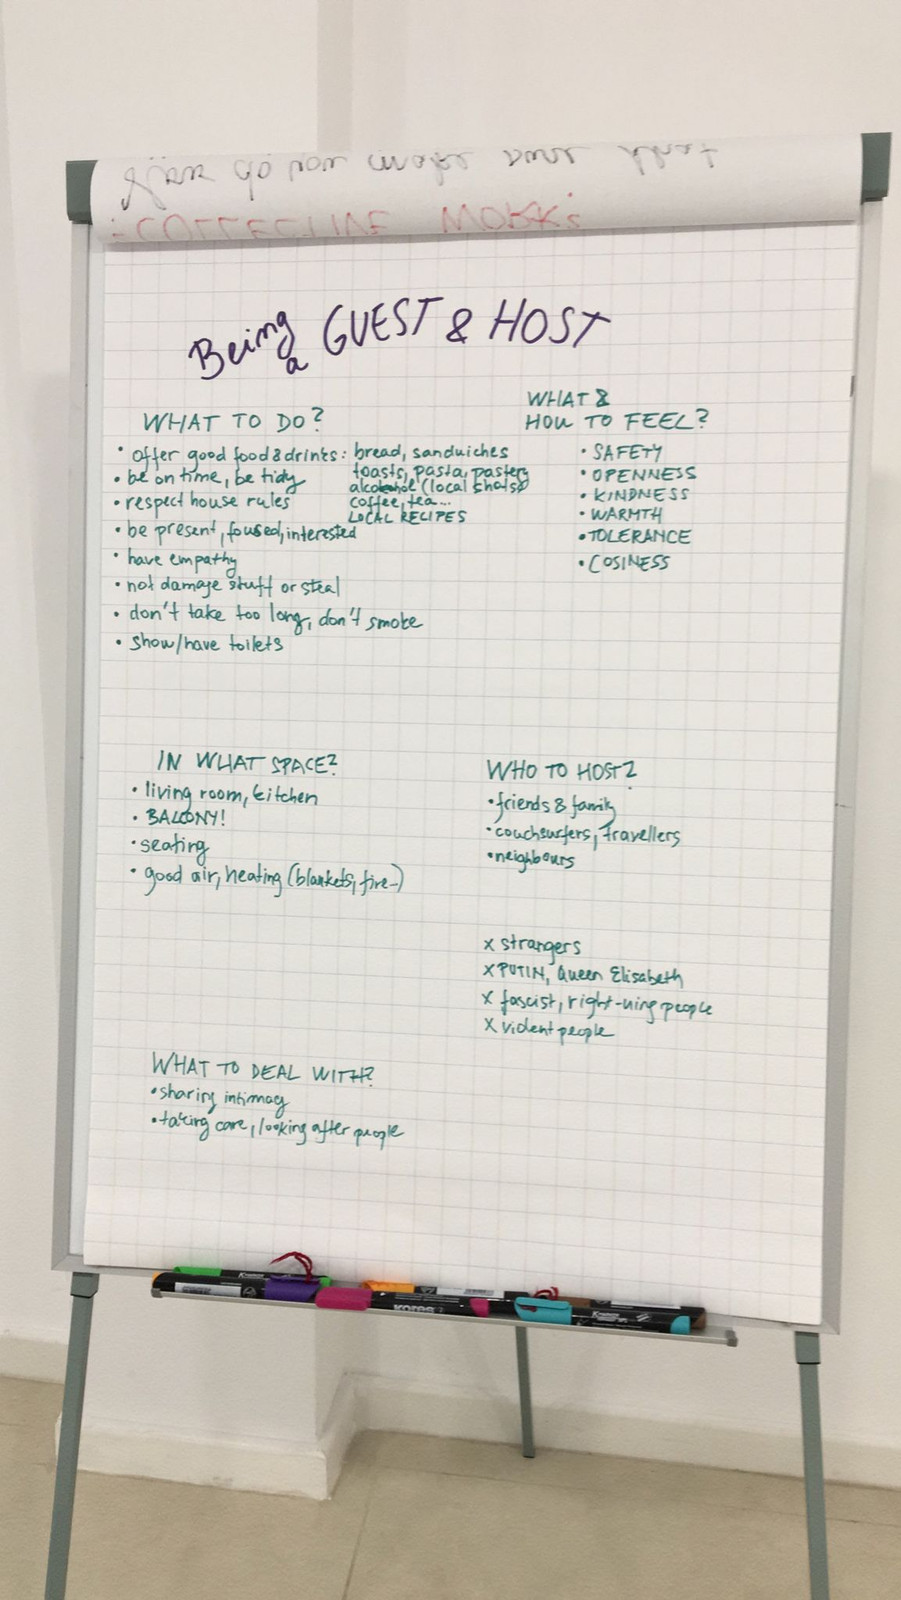 Being a GUEST & HOST
WHAT TO DO?
• offer good food & drinks: bread, sandwiches
toasts, pasta, pastery
alcohole (local
coffee, tea...
LOCAL RECIPES
• be on time, be tidy
• respect house rules
• be present, foused, interested
• have empathy
• not damage stuff or steal
• don't take too long, don't smoke
• show/have toilets
WHAT &
HOW TO FEEL?
• SAFETY
• OPENNESS
• KINDNESS
• WARMTH
• TOLERANCE
• COSINESS
IN WHAT SPACE?
• living room, kitchen
• BALCONY!
• seating
• good air, heating (blankets, fire..)
WHO TO HOST?
• friends & family
• couchsurfers, travellers
• neighbours
x strangers
x PUTIN, Queen Elisabeth
x fascist, right-wing people
x violent people
WHAT TO DEAL WITH?
• sharing intimacy
• taking care, looking after people
COLLECTIVE
kores